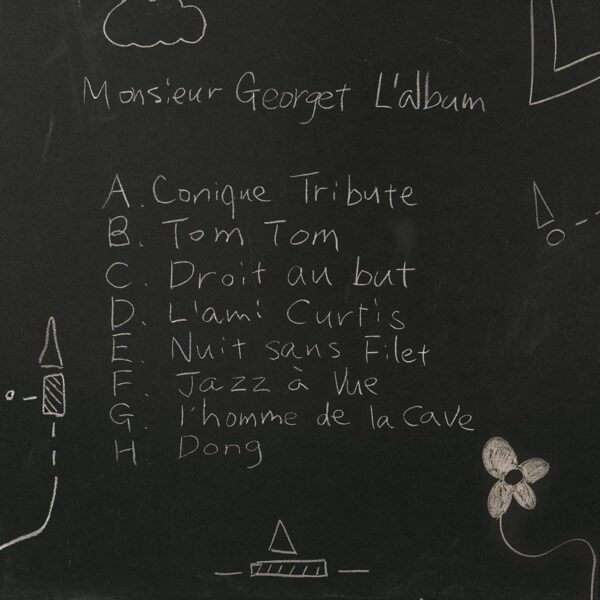 Monsieur Georget L'album
A. Conique Tribute
B. Tom Tom
C. Droit au but
D. L'ami Curtis
E. Nuit sans Filet
F. Jazz à Vue
G. l'homme de la Cave
H. Dong